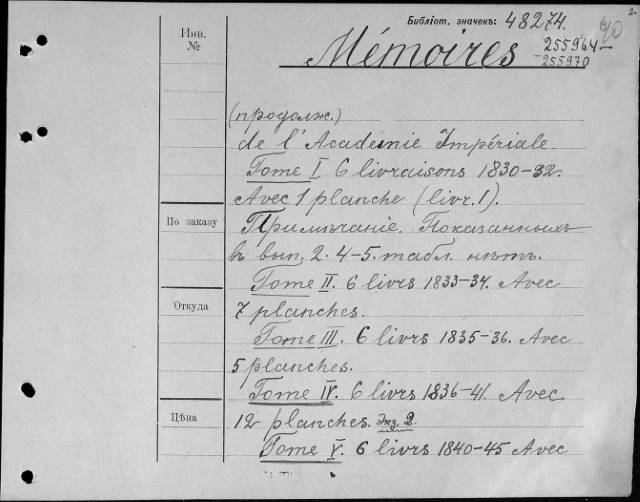 2.
Библіот. значекъ: 48274.
40
Инв.
№
Mémoires
255964-
-255970
(продолж.)
de l'Académie Impériale.
Tome I 6 livraisons 1830-32.
Avec 1 planche (livr. 1).
По заказу
Примѣчаніе. Показанныхъ
въ вып. 2. 4-5. табл. нѣтъ.
Tome II. 6 livrs 1833-34. Avec
Откуда
7 planches.
Tome III. 6 livrs 1835-36. Avec
5 planches.
Tome IV. 6 livrs 1836-41. Avec
Цѣна
12 planches. Экз. 2.
Tome V. 6 livrs 1840-45 Avec